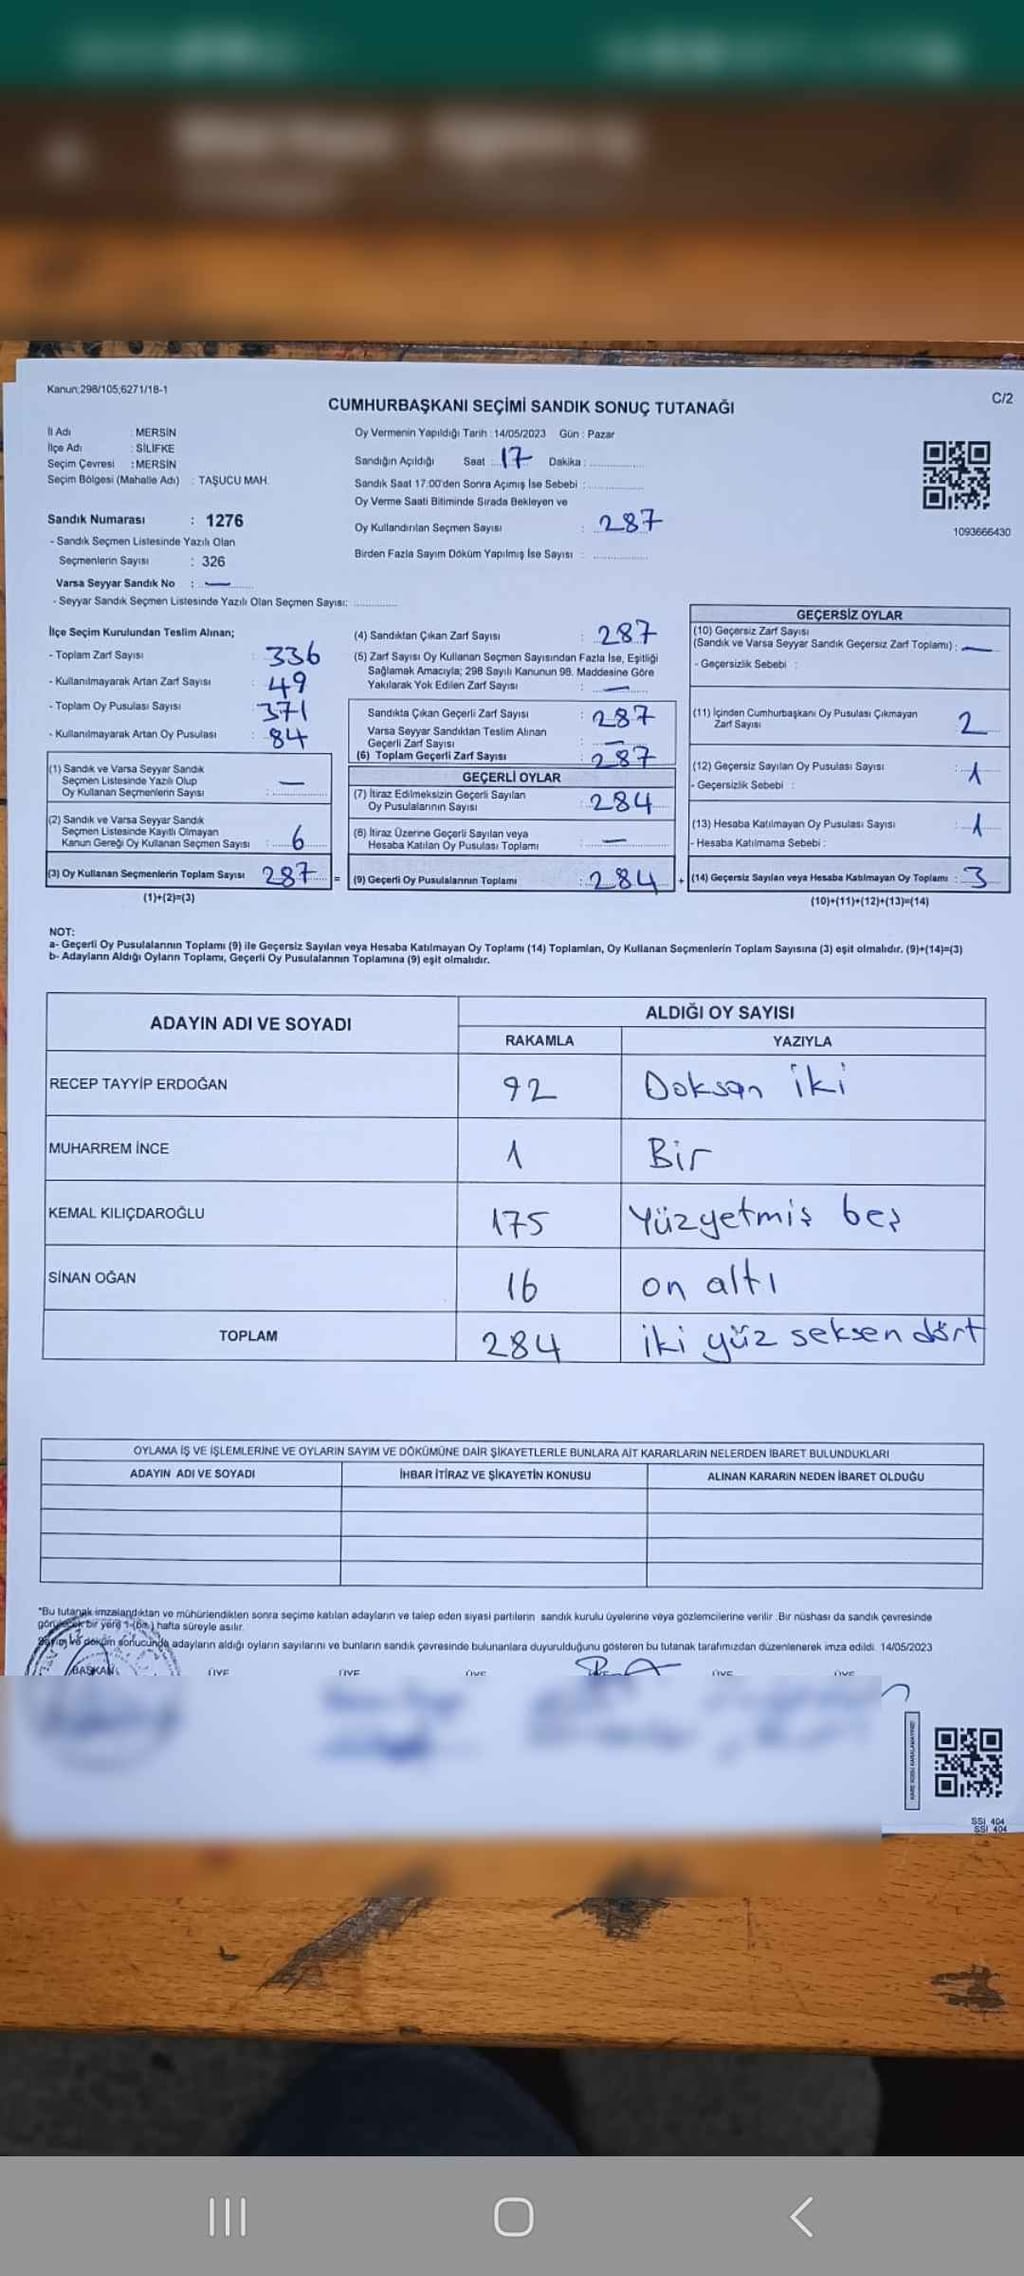 Kanun;298/105,6271/18-1
C/2
CUMHURBAŞKANI SEÇİMİ SANDIK SONUÇ TUTANAĞI
İl Adı : MERSİN
İlçe Adı : SİLİFKE
Seçim Çevresi : MERSİN
Seçim Bölgesi (Mahalle Adı) : TAŞUCU MAH.
Sandık Numarası : 1276
- Sandık Seçmen Listesinde Yazılı Olan
Seçmenlerin Sayısı : 326
Varsa Seyyar Sandık No : —
- Seyyar Sandık Seçmen Listesinde Yazılı Olan Seçmen Sayısı:
Oy Vermenin Yapıldığı Tarih : 14/05/2023 Gün : Pazar
Sandığın Açıldığı Saat : 17 Dakika :
Sandık Saat 17:00'den Sonra Açımış İse Sebebi :
Oy Verme Saati Bitiminde Sırada Bekleyen ve
Oy Kullandırılan Seçmen Sayısı : 287
Birden Fazla Sayım Döküm Yapılmış İse Sayısı :
1093666430
İlçe Seçim Kurulundan Teslim Alınan;
- Toplam Zarf Sayısı : 336
- Kullanılmayarak Artan Zarf Sayısı : 49
- Toplam Oy Pusulası Sayısı : 371
- Kullanılmayarak Artan Oy Pusulası : 84
(1) Sandık ve Varsa Seyyar Sandık
Seçmen Listesinde Yazılı Olup
Oy Kullanan Seçmenlerin Sayısı : —
(2) Sandık ve Varsa Seyyar Sandık
Seçmen Listesinde Kayıtlı Olmayan
Kanun Gereği Oy Kullanan Seçmen Sayısı : 6
(3) Oy Kullanan Seçmenlerin Toplam Sayısı 287 =
(1)+(2)=(3)
(4) Sandıktan Çıkan Zarf Sayısı : 287
(5) Zarf Sayısı Oy Kullanan Seçmen Sayısından Fazla İse, Eşitliği
Sağlamak Amacıyla; 298 Sayılı Kanunun 98. Maddesine Göre
Yakılarak Yok Edilen Zarf Sayısı : —
Sandıkta Çıkan Geçerli Zarf Sayısı : 287
Varsa Seyyar Sandıktan Teslim Alınan
Geçerli Zarf Sayısı : —
(6) Toplam Geçerli Zarf Sayısı : 287
GEÇERLİ OYLAR
(7) İtiraz Edilmeksizin Geçerli Sayılan
Oy Pusulalarının Sayısı : 284
(8) İtiraz Üzerine Geçerli Sayılan veya
Hesaba Katılan Oy Pusulası Toplamı : —
(9) Geçerli Oy Pusulalarının Toplamı : 284 +
GEÇERSİZ OYLAR
(10) Geçersiz Zarf Sayısı
(Sandık ve Varsa Seyyar Sandık Geçersiz Zarf Toplamı) : —
- Geçersizlik Sebebi :
(11) İçinden Cumhurbaşkanı Oy Pusulası Çıkmayan
Zarf Sayısı 2
(12) Geçersiz Sayılan Oy Pusulası Sayısı : 1
- Geçersizlik Sebebi :
(13) Hesaba Katılmayan Oy Pusulası Sayısı : 1
- Hesaba Katılmama Sebebi :
(14) Geçersiz Sayılan veya Hesaba Katılmayan Oy Toplamı : 3
(10)+(11)+(12)+(13)=(14)
NOT:
a- Geçerli Oy Pusulalarının Toplamı (9) ile Geçersiz Sayılan veya Hesaba Katılmayan Oy Toplamı (14) Toplamları, Oy Kullanan Seçmenlerin Toplam Sayısına (3) eşit olmalıdır. (9)+(14)=(3)
b- Adayların Aldığı Oyların Toplamı, Geçerli Oy Pusulalarının Toplamına (9) eşit olmalıdır.
ADAYIN ADI VE SOYADI
ALDIĞI OY SAYISI
RAKAMLA YAZIYLA
RECEP TAYYİP ERDOĞAN 92 Doksan iki
MUHARREM İNCE 1 Bir
KEMAL KILIÇDAROĞLU 175 Yüzyetmiş beş
SİNAN OĞAN 16 on altı
TOPLAM 284 iki yüz seksen dört
OYLAMA İŞ VE İŞLEMLERİNE VE OYLARIN SAYIM VE DÖKÜMÜNE DAİR ŞİKAYETLERLE BUNLARA AİT KARARLARIN NELERDEN İBARET BULUNDUKLARI
ADAYIN ADI VE SOYADI İHBAR İTİRAZ VE ŞİKAYETİN KONUSU ALINAN KARARIN NEDEN İBARET OLDUĞU
*Bu tutanak imzalandıktan ve mühürlendikten sonra seçime katılan adayların ve talep eden siyasi partilerin sandık kurulu üyelerine veya gözlemcilerine verilir. Bir nüshası da sandık çevresinde
görülecek bir yere 1 (bir) hafta süreyle asılır.
Sayım ve döküm sonucunda adayların aldığı oyların sayılarını ve bunların sandık çevresinde bulunanlara duyurulduğunu gösteren bu tutanak tarafımızdan düzenlenerek imza edildi. 14/05/2023
BAŞKAN ÜYE ÜYE ÜYE ÜYE ÜYE
SSI 404
SSI 404